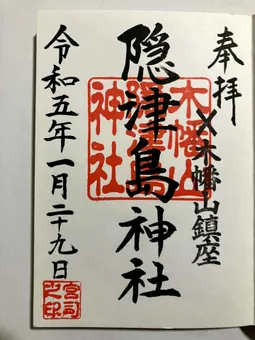 奉拝
木幡山鎮座
隠津島神社
令和五年一月二十九日
木幡山
隠津島
神社
宮司
之印